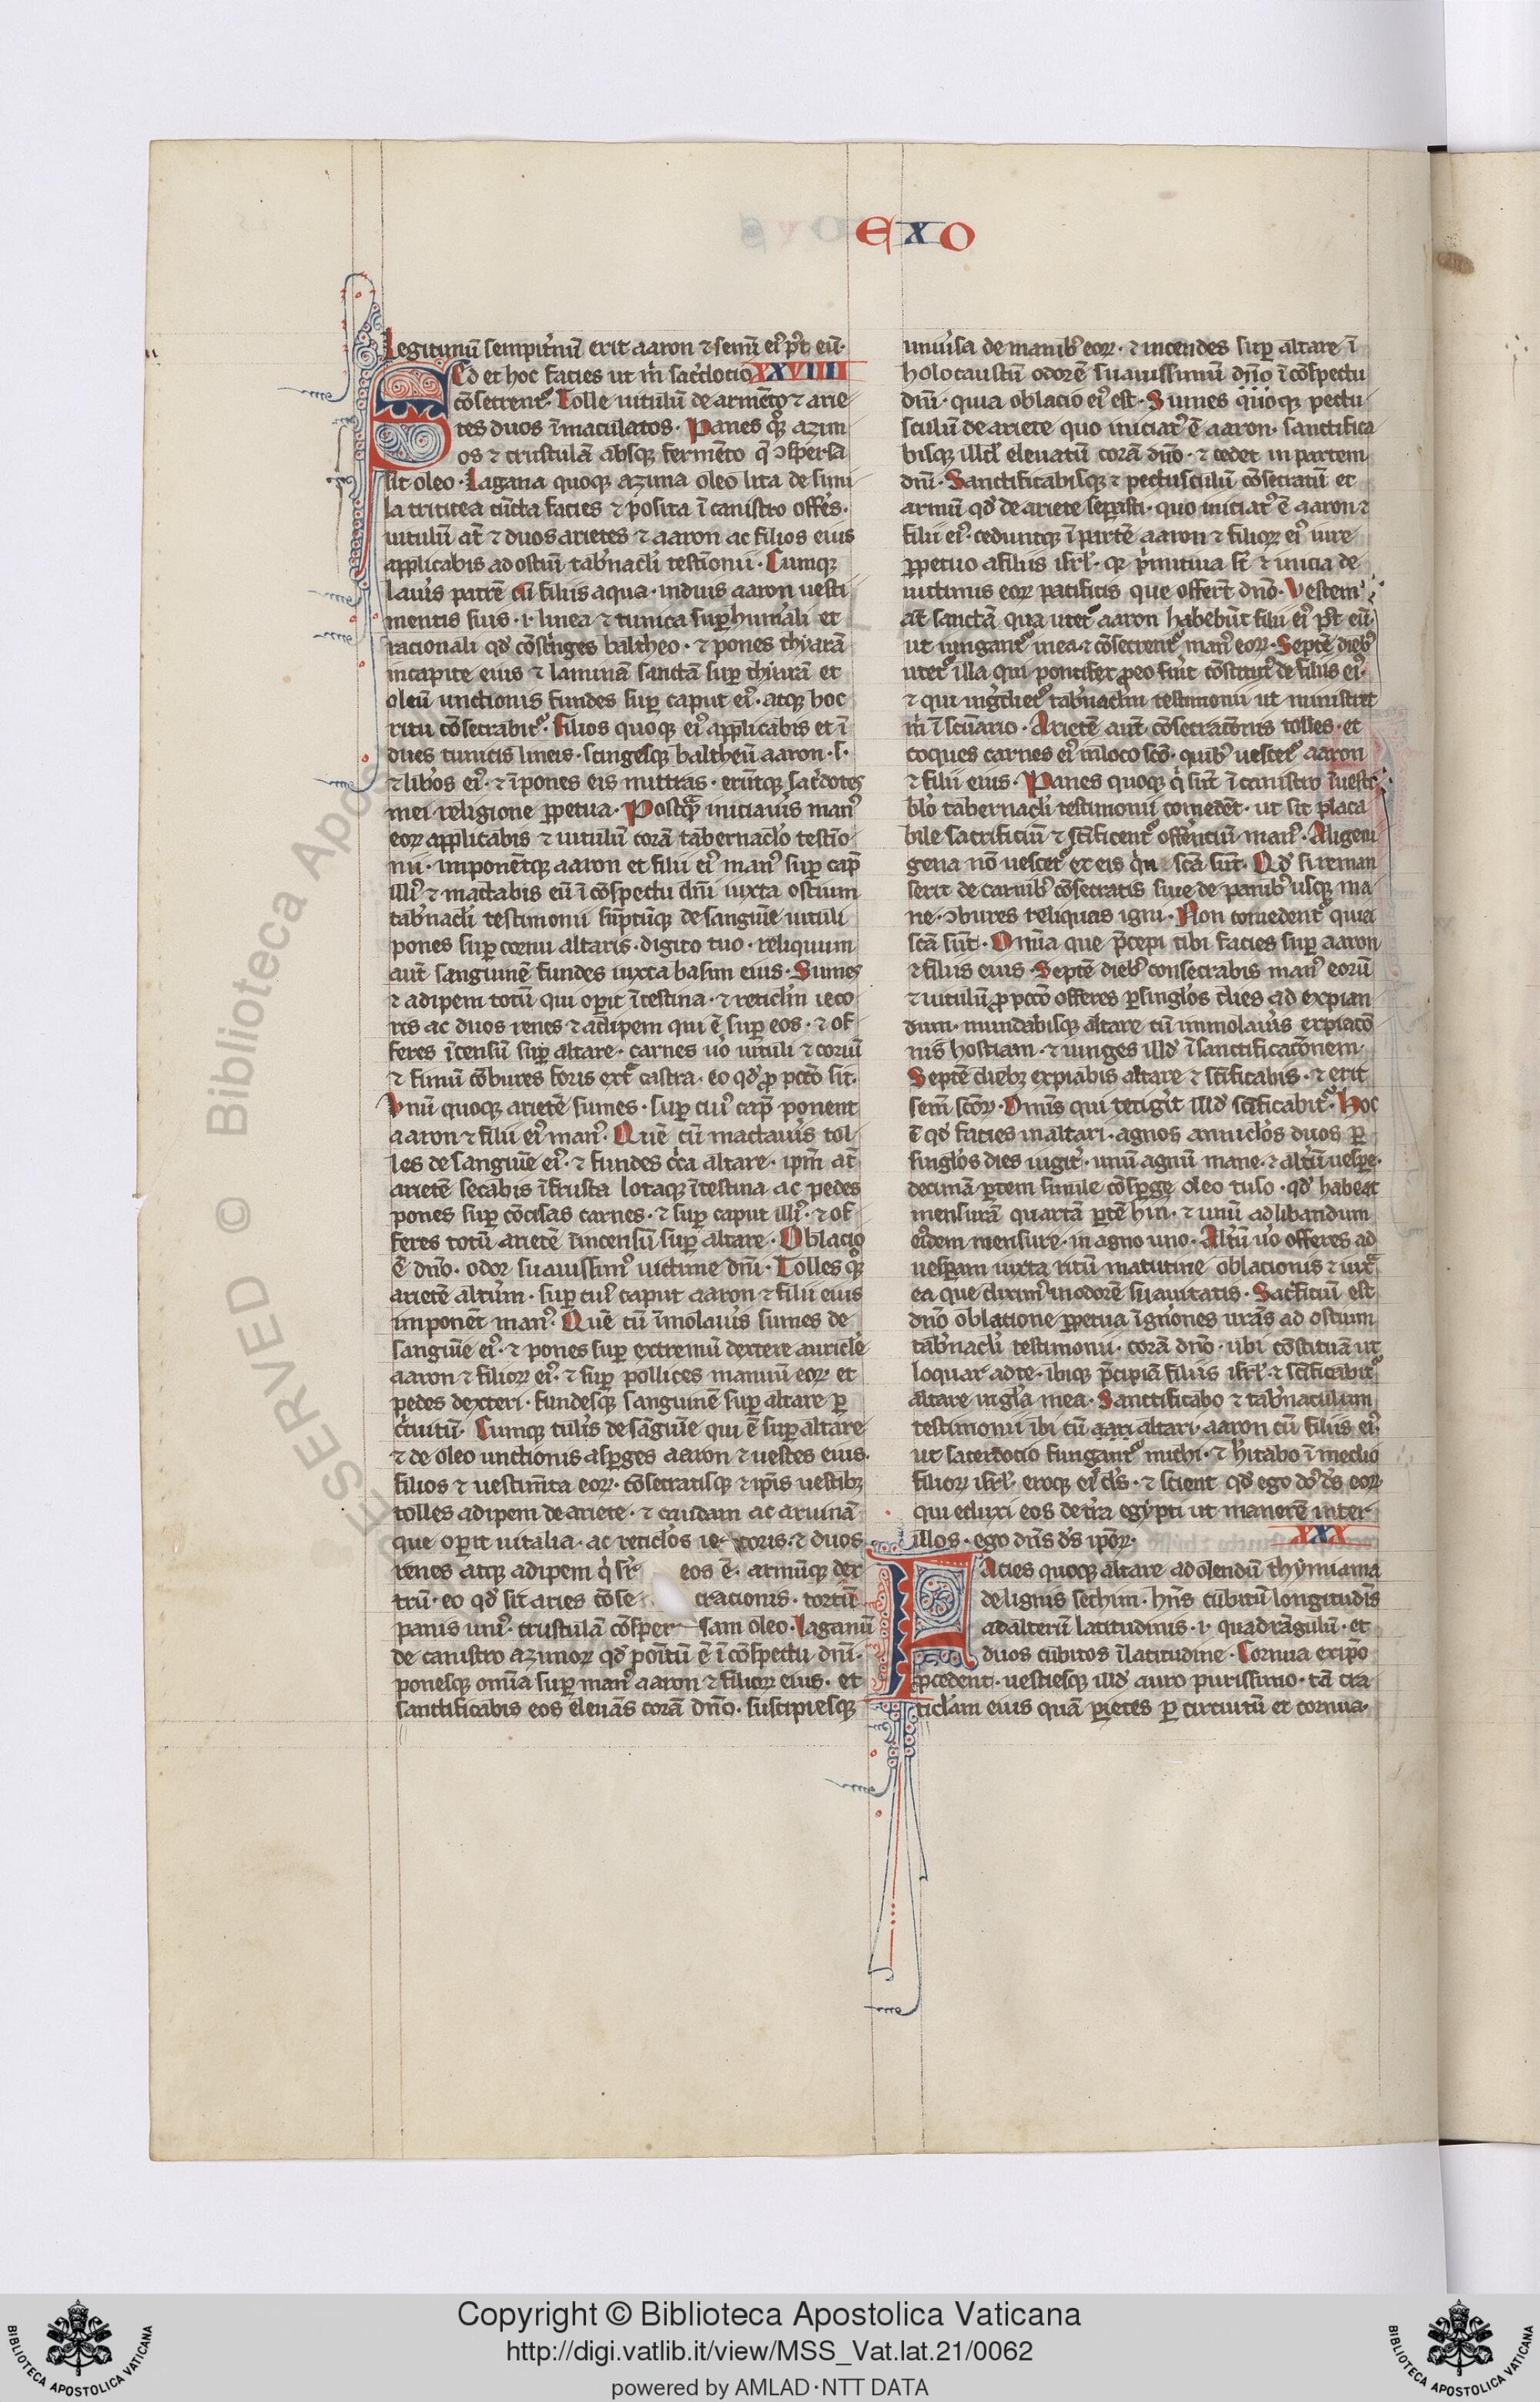 EXO
Legitimū sempit̾nū erit aaron ⁊ semī ei᷒ p᷒t eū·
Sed et hoc facies ut m̄ sac̾docio XXVIIII
cōsecrent᷑· Tolle uitulū de armēto ⁊ arie
tes duos īmaculatos· Panes qͦꝫ azim
os ⁊ crustulā absqꝫ fermēto q̄ ɔspersa
sit oleo· Lagana quoqꝫ azima oleo lita de simi
la triticea cūcta facies ⁊ posita ī canistro offēs·
uitulū aū ⁊ duos arietes ⁊ aaron ac filios eius
applicabis ad ostiū tab̾nacl̄i testīonii· Cumqꝫ
lau̾is patrē cū filiis aqua· induis aaron uesti
mentis suis· .i. linea ⁊ tunica suꝑhum̾ali et
racionali qd̄ cōstⁱnges baltheo· ⁊ pones thyarā
in capite eius ⁊ laminā sanctā suꝑ thyarā et
oleū unctionis fundes suꝑ caput ei᷒· atqꝫ hoc
ritu cōsecrabit᷑· Filios quoqꝫ ei᷒ applicabis et ī
dues tunicis lineis· cingesqꝫ baltheū aaron· s·
⁊ lib̾os ei᷒· ⁊ īpones eis mittras· erūtqꝫ sac̾dotes
mei religione ꝑpetua· Postqᷓ iniciau̾is man᷒
eoꝝ applicabis ⁊ uitulū corā tabernacl̄o testīo
nii· imponētqꝫ aaron et filii ei᷒ man᷒ suꝑ cap̄
illi᷒ ⁊ mactabis eū ī cōspectu dn̄i iuxta ostium
tab̾nacl̄i testimonii sūptūqꝫ de sanguīe uituli
pones suꝑ cornu altaris· digito tuo· reliquum
aut̄ sanguinē fundes iuxta basim eius· Sumes
⁊ adipem totū qui oꝑit ītestina· ⁊ reticl̄m ieco
ris ac duos renes ⁊ adipem qui ē suꝑ eos· ⁊ of
feres īcensū suꝑ altare· carnes u̾o uituli ⁊ coriū
⁊ fimū cōbures foris extᷓ castra· eo qd̄ ꝓ pctō sit·
Vnū quoqꝫ arietē sumes· suꝑ cui᷒ cap̄ ponent
aaron ⁊ filii ei᷒ man᷒· Quē cū mactau̾is tol
les de sanguīe ei᷒· ⁊ fundes cⁱca altare· ipm̄ aū
arietē secabis ī frusta lotaqꝫ ītestina ac pedes
pones suꝑ cōcisas carnes· ⁊ suꝑ caput illi᷒· ⁊ of
feres totū arietē ī incensū suꝑ altare· Oblacio
ē dn̄o· odor suauissim᷒ uictime dn̄i· Tolles qͦꝫ
arietē alt̾um· suꝑ cui᷒ caput aaron ⁊ filii eius
imponēt man᷒· Quē cū īmolau̾is sumes de
sanguīe ei᷒· ⁊ pones suꝑ extremū dextere auricl̄e
aaron ⁊ filioꝝ ei᷒· ⁊ suꝑ pollices manuū eoꝝ et
pedes dexteri· fundesqꝫ sanguinē suꝑ altare ꝑ
cⁱcuitū· Cumqꝫ tul̾is de sāguīe qui ē suꝑ altare
⁊ de oleo unctionis asꝑges aaron ⁊ uestes eius·
filios ⁊ uestim̄ta eoꝝ· cōsecratisqꝫ ⁊ ip̄is uestibꝫ
tolles adipem de ariete· ⁊ caudam ac aruinā
que oꝑit uitalia· ac reticl̄os ie coris· ⁊ duos
renes atqꝫ adipem qⁱ sr̄ eos ē· armūqꝫ dex
trū· eo qd̄ sit aries cōse cracionis· tortū
panis uni᷒· crustulā cōsper sam oleo· Laganū
de canistro azimoꝝ qd̄ pōitū ē ī cōspectu dn̄i·
ponesqꝫ omīa suꝑ man᷒ aaron ⁊ filioꝝ eius· et
sanctificabis eos eleuās corā dn̄o· suscipiesqꝫ
uniu̾sa de manib᷒ eoꝝ· ⁊ incendes suꝑ altare ī
holocaustū odorē suauissimū dn̄o ī cōspectu
dn̄i· quia oblacio ei᷒ est· Sumes quoqꝫ pectu
sculū de ariete quo iniciat᷒ ē aaron· sanctifica
bisqꝫ illd̄ eleuatū corā dn̄o· ⁊ cedet in partem
dn̄i· Sanctificabisqꝫ ⁊ pectusculū cōsecratū et
armū qd̄ de ariete seꝑasti· quo iniciat᷒ ē aaron ⁊
filii ei᷒· ceduntqꝫ ī partē aaron ⁊ filioꝝ ei᷒ iure
ꝑpetuo a filiis isrl̄· qꝛ pⁱmitiua st̄ ⁊ inicia de
uictimis eoꝝ pacificis que offerūt dn̄o· Vestem
aū sanctā qua utet᷑ aaron habebūt filii ei᷒ p᷒t eū·
ut ungant᷑ in ea ⁊ cōsecrent᷑ man᷒ eoꝝ· Septē dieb᷒
utet᷑ illa qui pontifex ꝓ eo fu̾it cōstitut᷒ de filiis ei᷒·
⁊ qui ingᷓdiet᷑ tab̾nacl̄m testimonii ut ministret
m̄ ī scūario· Arietē aut̄ cōsecracōnis tolles· et
coques carnes ei᷒ in loco scō· quib᷒ uescet᷑ aaron
⁊ filii eius· Panes quoqꝫ qⁱ sūt ī canistro ī uesti
bl̄o tabernacl̄i testimonii comedēt· ut sit placa
bile sacrificiū ⁊ scīficent᷑ offerētiū man᷒· Aligeni
gena nō uescet᷑ ex eis qm̄ scā sūt· Qd̄ si reman
serit de carnib᷒ cōsecratis siue de panib᷒ usqꝫ ma
ne· ɔbures reliquias igni· Non comedent᷑ quia
scā sūt· Omīa que p̄cepi tibi facies suꝑ aaron
⁊ filiis eius· Septē dieb᷒ consecrabis man᷒ eorū
⁊ uitulū ꝓ pctō offeres ꝑ singl̄os dies ad expian
dum· mundabisqꝫ altare cū immolau̾is expiacō
nis hostiam· ⁊ unges illd̄ ī sanctificacōnem·
Septē diebꝫ expiabis altare ⁊ scīficabis· ⁊ erit
scm̄ scōꝝ· Omīs qui tetig̾it illd̄ scīficabit᷑· Hoc
ē qd̄ facies in altari· agnos annicl̄os duos ꝑ
singl̄os dies iugit̾· unū agnū mane· ⁊ alt̾ū uesꝑe·
decimā ꝑtem simile cōsꝑge oleo tuso· qd̄ habeat
mensurā quartā ꝑtē hin· ⁊ uinū ad libandum
ei᷒dem mensure· in agno uno· Alt̾ū u̾o offeres ad
uesꝑam iuxta ritū matutine oblationis ⁊ iuxᷓ
ea que dixim᷒ in odorē suauitatis· Sacⁱficiū est
dn̄o oblatione ꝑpetua ī gn̄iones urās ad ostium
tab̾nacl̄i testimonii· corā dn̄o· ubi cōstituā ut
loquar ad te· ibiqꝫ p̄cipiā filiis isrl̄· ⁊ scīficabit᷑
altare in gl̄a mea· Sanctificabo ⁊ tab̾naculum
testimonii ibi cū altari· aaron cū filiis ei᷒·
ut sacerdotio fungant᷑ michi· ⁊ hītabo ī medio
filioꝝ isrl̄· eroqꝫ ei᷒ ds̄· ⁊ scient qd̄ ego dn̄s ds̄ eoꝝ·
qui eduxi eos de t̾ra egypti ut manerē inter
illos· ego dn̄s ds̄ ipōꝝ· XXX
Facies quoqꝫ altare ad olendū thymiama
de lignis sethim· hn̄s cubitū longitudīs
⁊ alterū latitudinis· .i. quadrāgulū· et
duos cubitos ī latitudine· Cornua ex ip̄o
ꝓcedent· uestiesqꝫ illd̄ auro purissimo· tā cra
ticl̄am eius quā ꝑietes ꝑ circuitū et cornua·
Copyright © Biblioteca Apostolica Vaticana
http://digi.vatlib.it/view/MSS_Vat.lat.21/0062
powered by AMLAD·NTT DATA
BIBLIOTECA APOSTOLICA VATICANA
BIBLIOTECA APOSTOLICA VATICANA